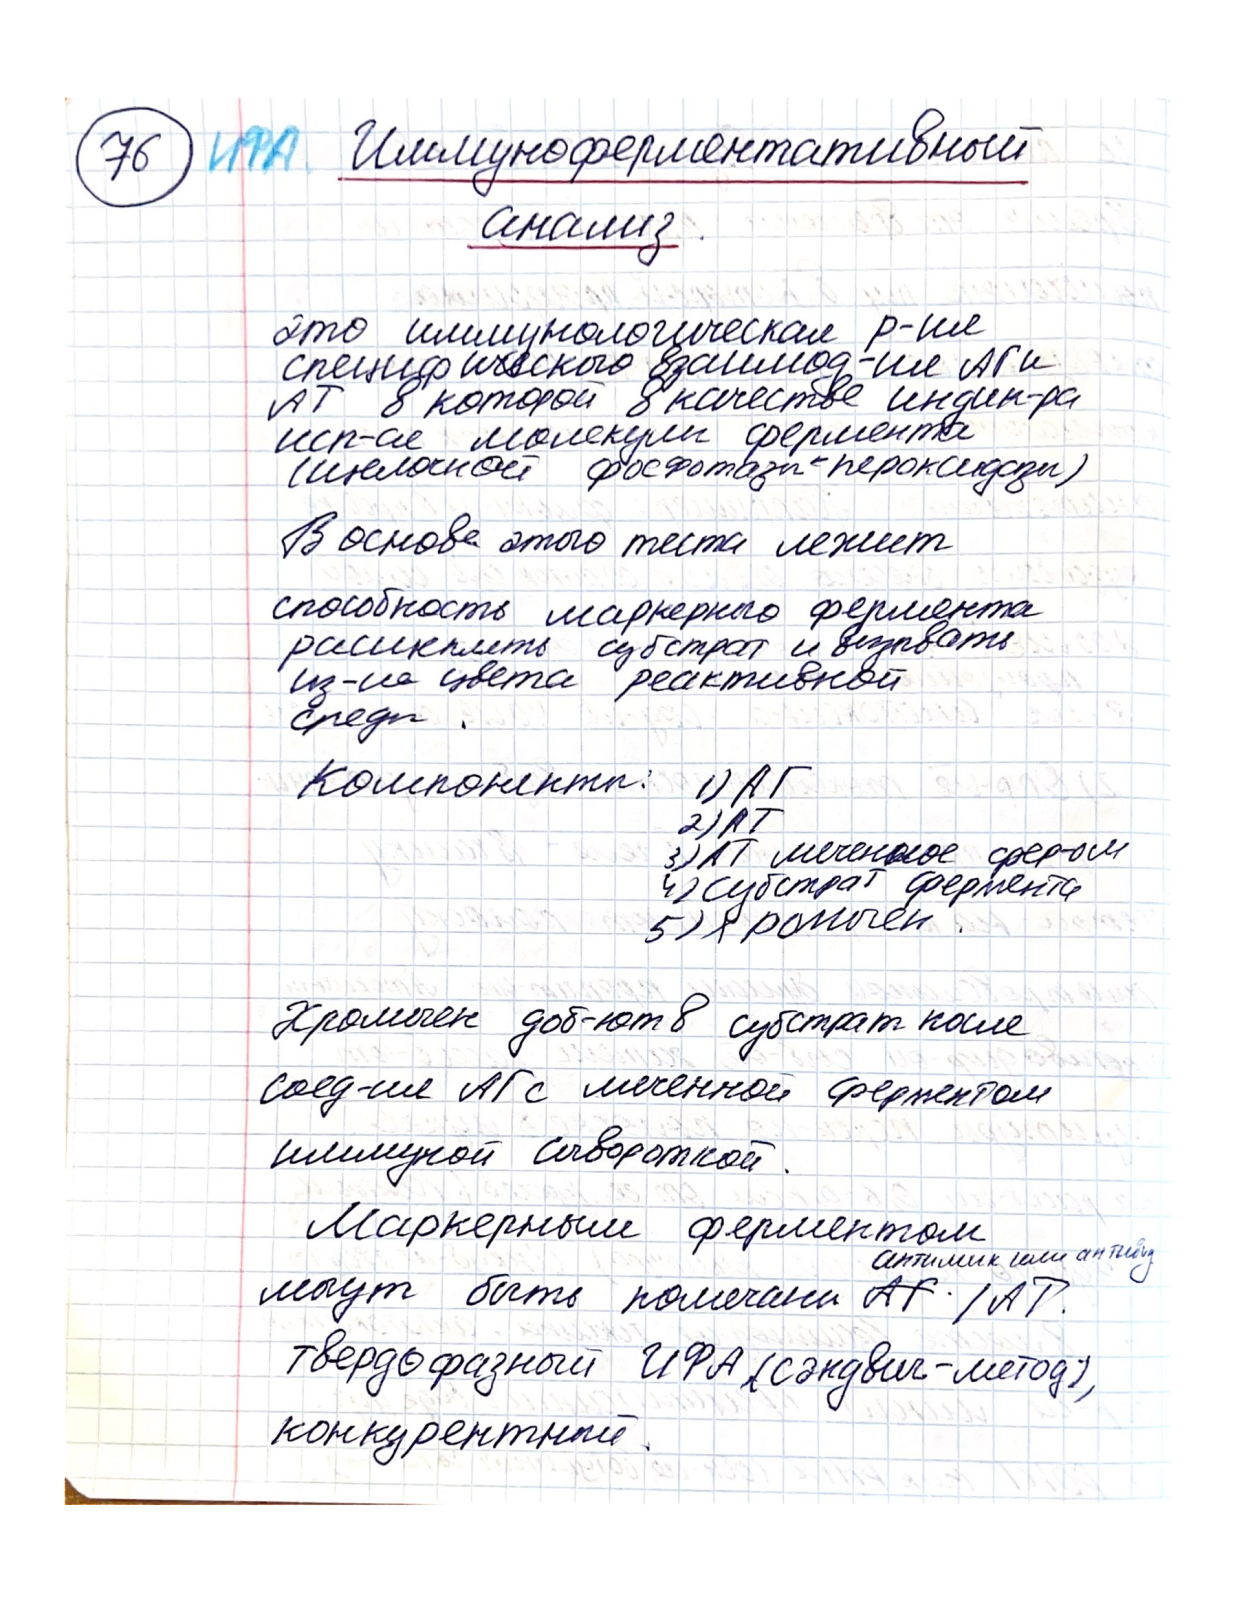 76 ИФА. Иммуноферментативный
анализ.
это иммунологическая р-ия
специфического взаимод-ия АГ и
АТ в которой в качестве индик-ра
исп-ся молекулы фермента
(щелочной фосфотазы пероксидазы)
В основе этого теста лежит
способность маркерного фермента
расщеплять субстрат и вызывать
из-ие цвета реактивной
среды.
Компоненты: 1) АГ
2) АТ
3) АТ меченное фер-ом
4) Субстрат фермента
5) Хромоген.
Хромоген доб-ют в субстрат после
соед-ия АГ с меченной ферментом
иммуной сывороткой.
Маркерным ферментом
антимик или антивид
могут быть помечаны АГ. / АТ.
твердофазный ИФА (сэндвич-метод),
конкурентный.